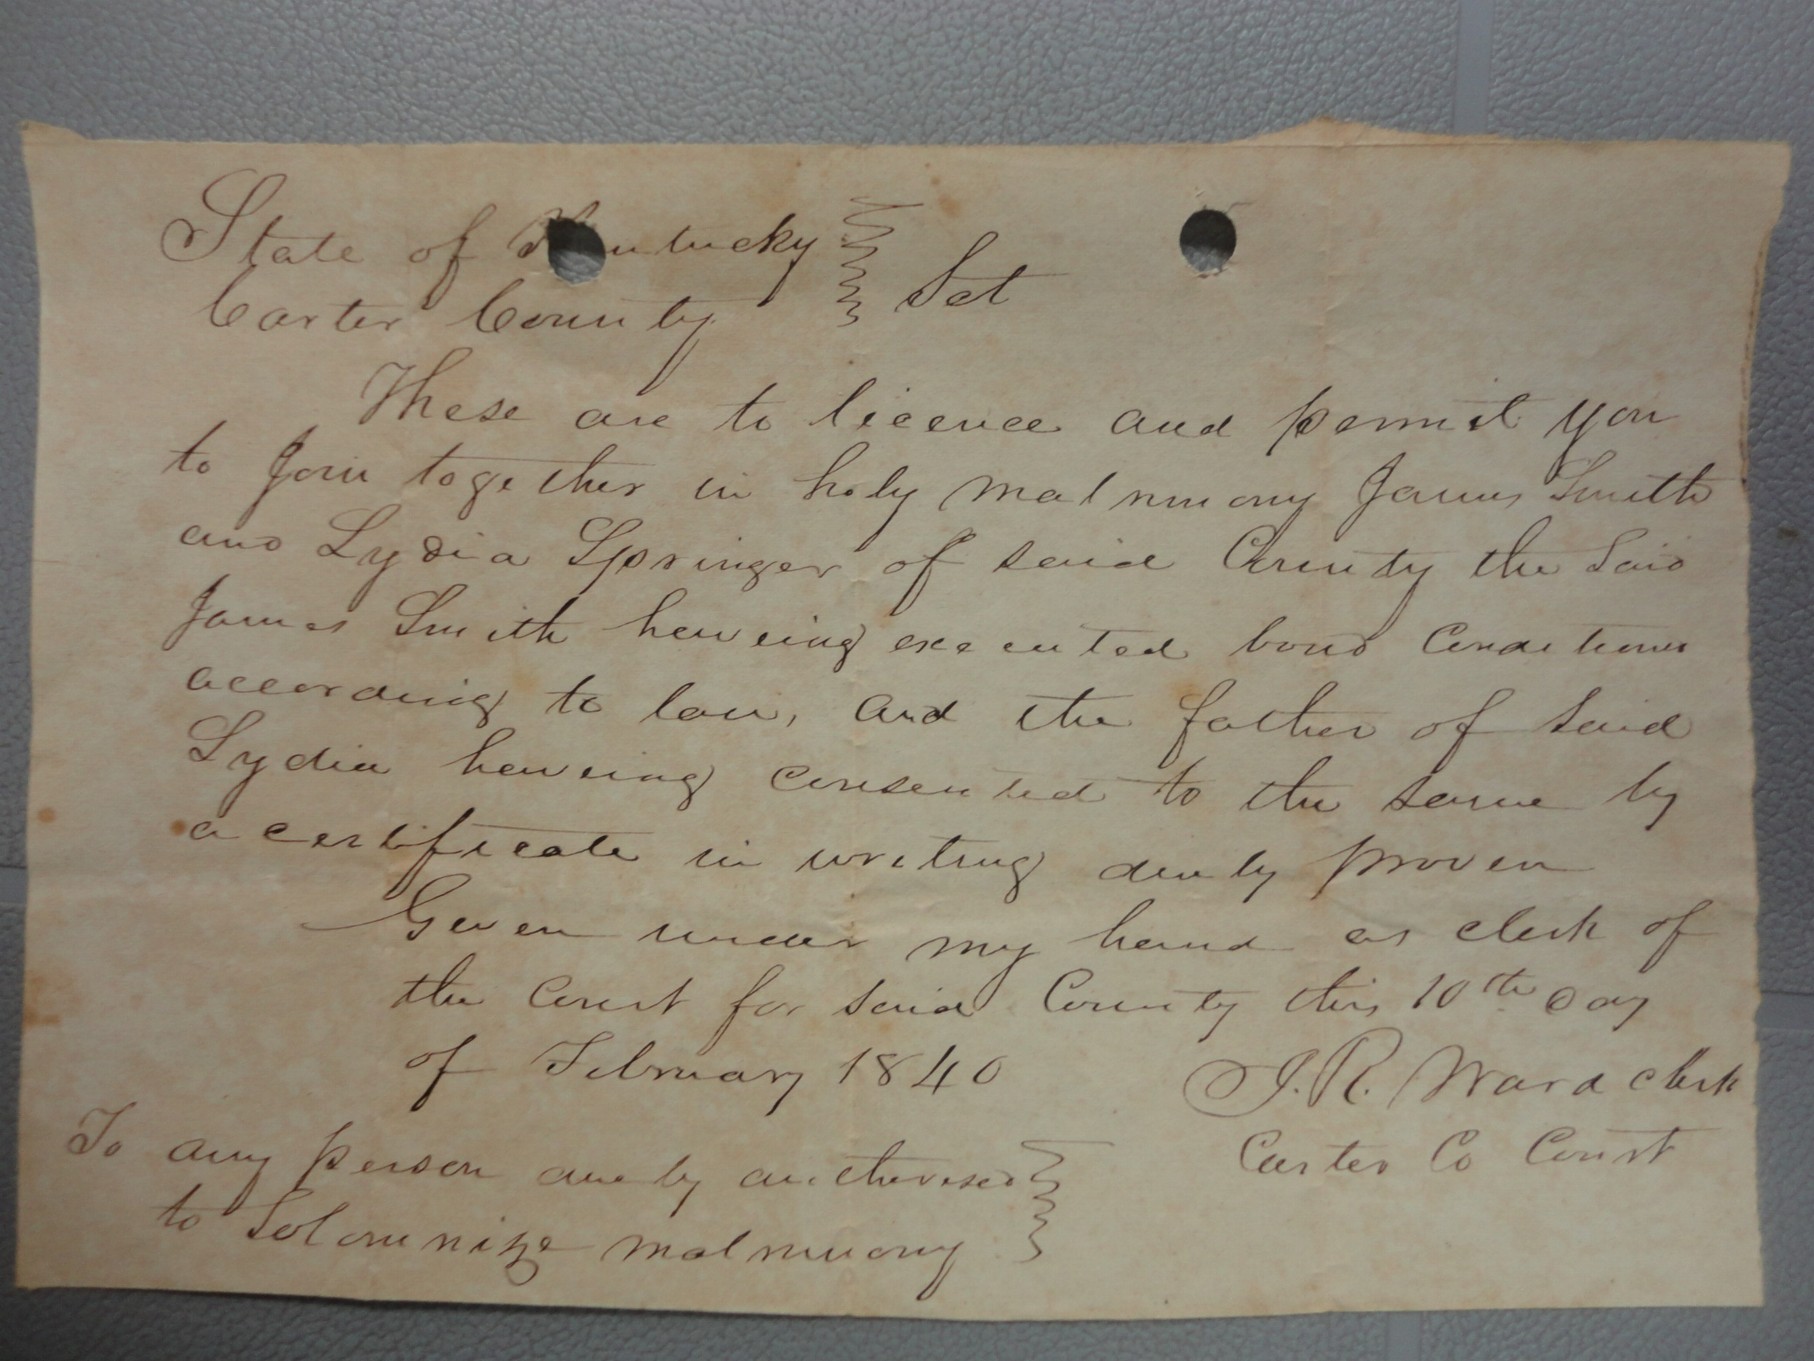 State of Kentucky } Sct
Carter County
These are to licence and permit you
to Join together in holy matrimony James Smith
and Lydia Springer of said County the Said
James Smith haveing executed bond Conditioned
according to law, and the father of said
Lydia haveing consented to the same by
a certificate in writing duely proven
Given under my hand as clerk of
the Court for said County this 10th day
of February 1840
J. R. Ward clerk
Carter Co Court
To any person duely authorised }
to Solomnize matrimony